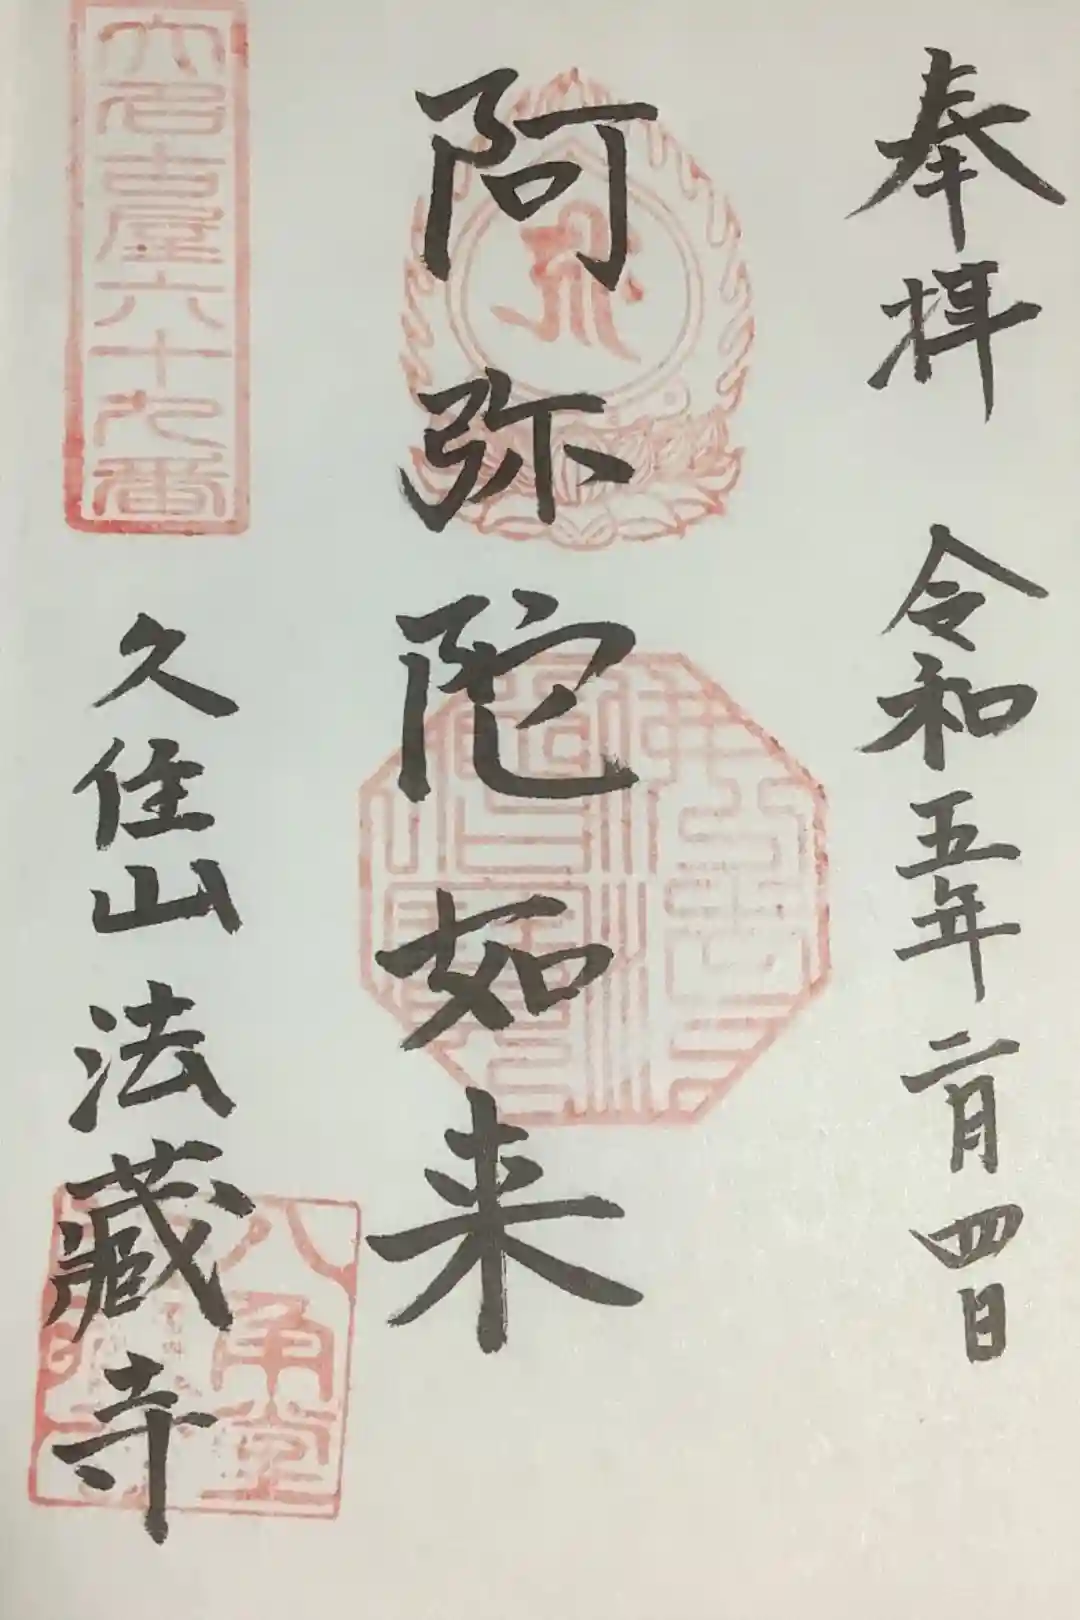 奉拝　令和五年二月四日
阿弥陀如来
大名古屋六十九番
久住山　法蔵寺
八角堂